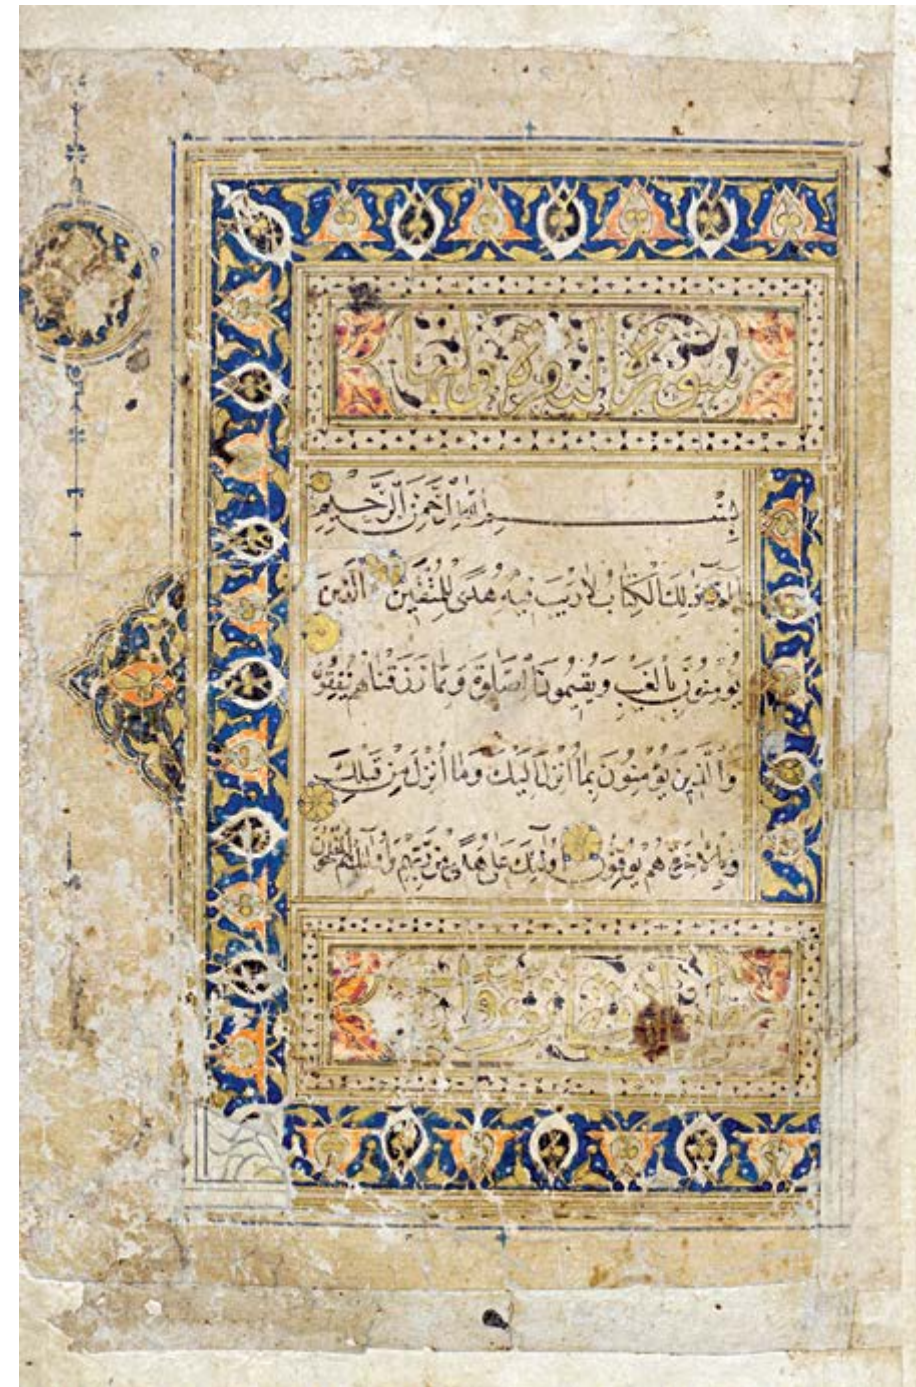 سورة البقرة
بِسْمِ اللهِ الرَّحْمٰنِ الرَّحِيمِ
الم ذٰلِكَ الْكِتَابُ لَا رَيْبَ فِيهِ هُدًى لِلْمُتَّقِينَ الَّذِينَ
يُؤْمِنُونَ بِالْغَيْبِ وَيُقِيمُونَ الصَّلٰوةَ وَمِمَّا رَزَقْنَاهُمْ يُنْفِقُونَ
وَالَّذِينَ يُؤْمِنُونَ بِمَا أُنْزِلَ إِلَيْكَ وَمَا أُنْزِلَ مِنْ قَبْلِكَ
وَبِالْآخِرَةِ هُمْ يُوقِنُونَ أُولٰئِكَ عَلَى هُدًى مِنْ رَبِّهِمْ وَأُولٰئِكَ هُمُ الْمُفْلِحُونَ